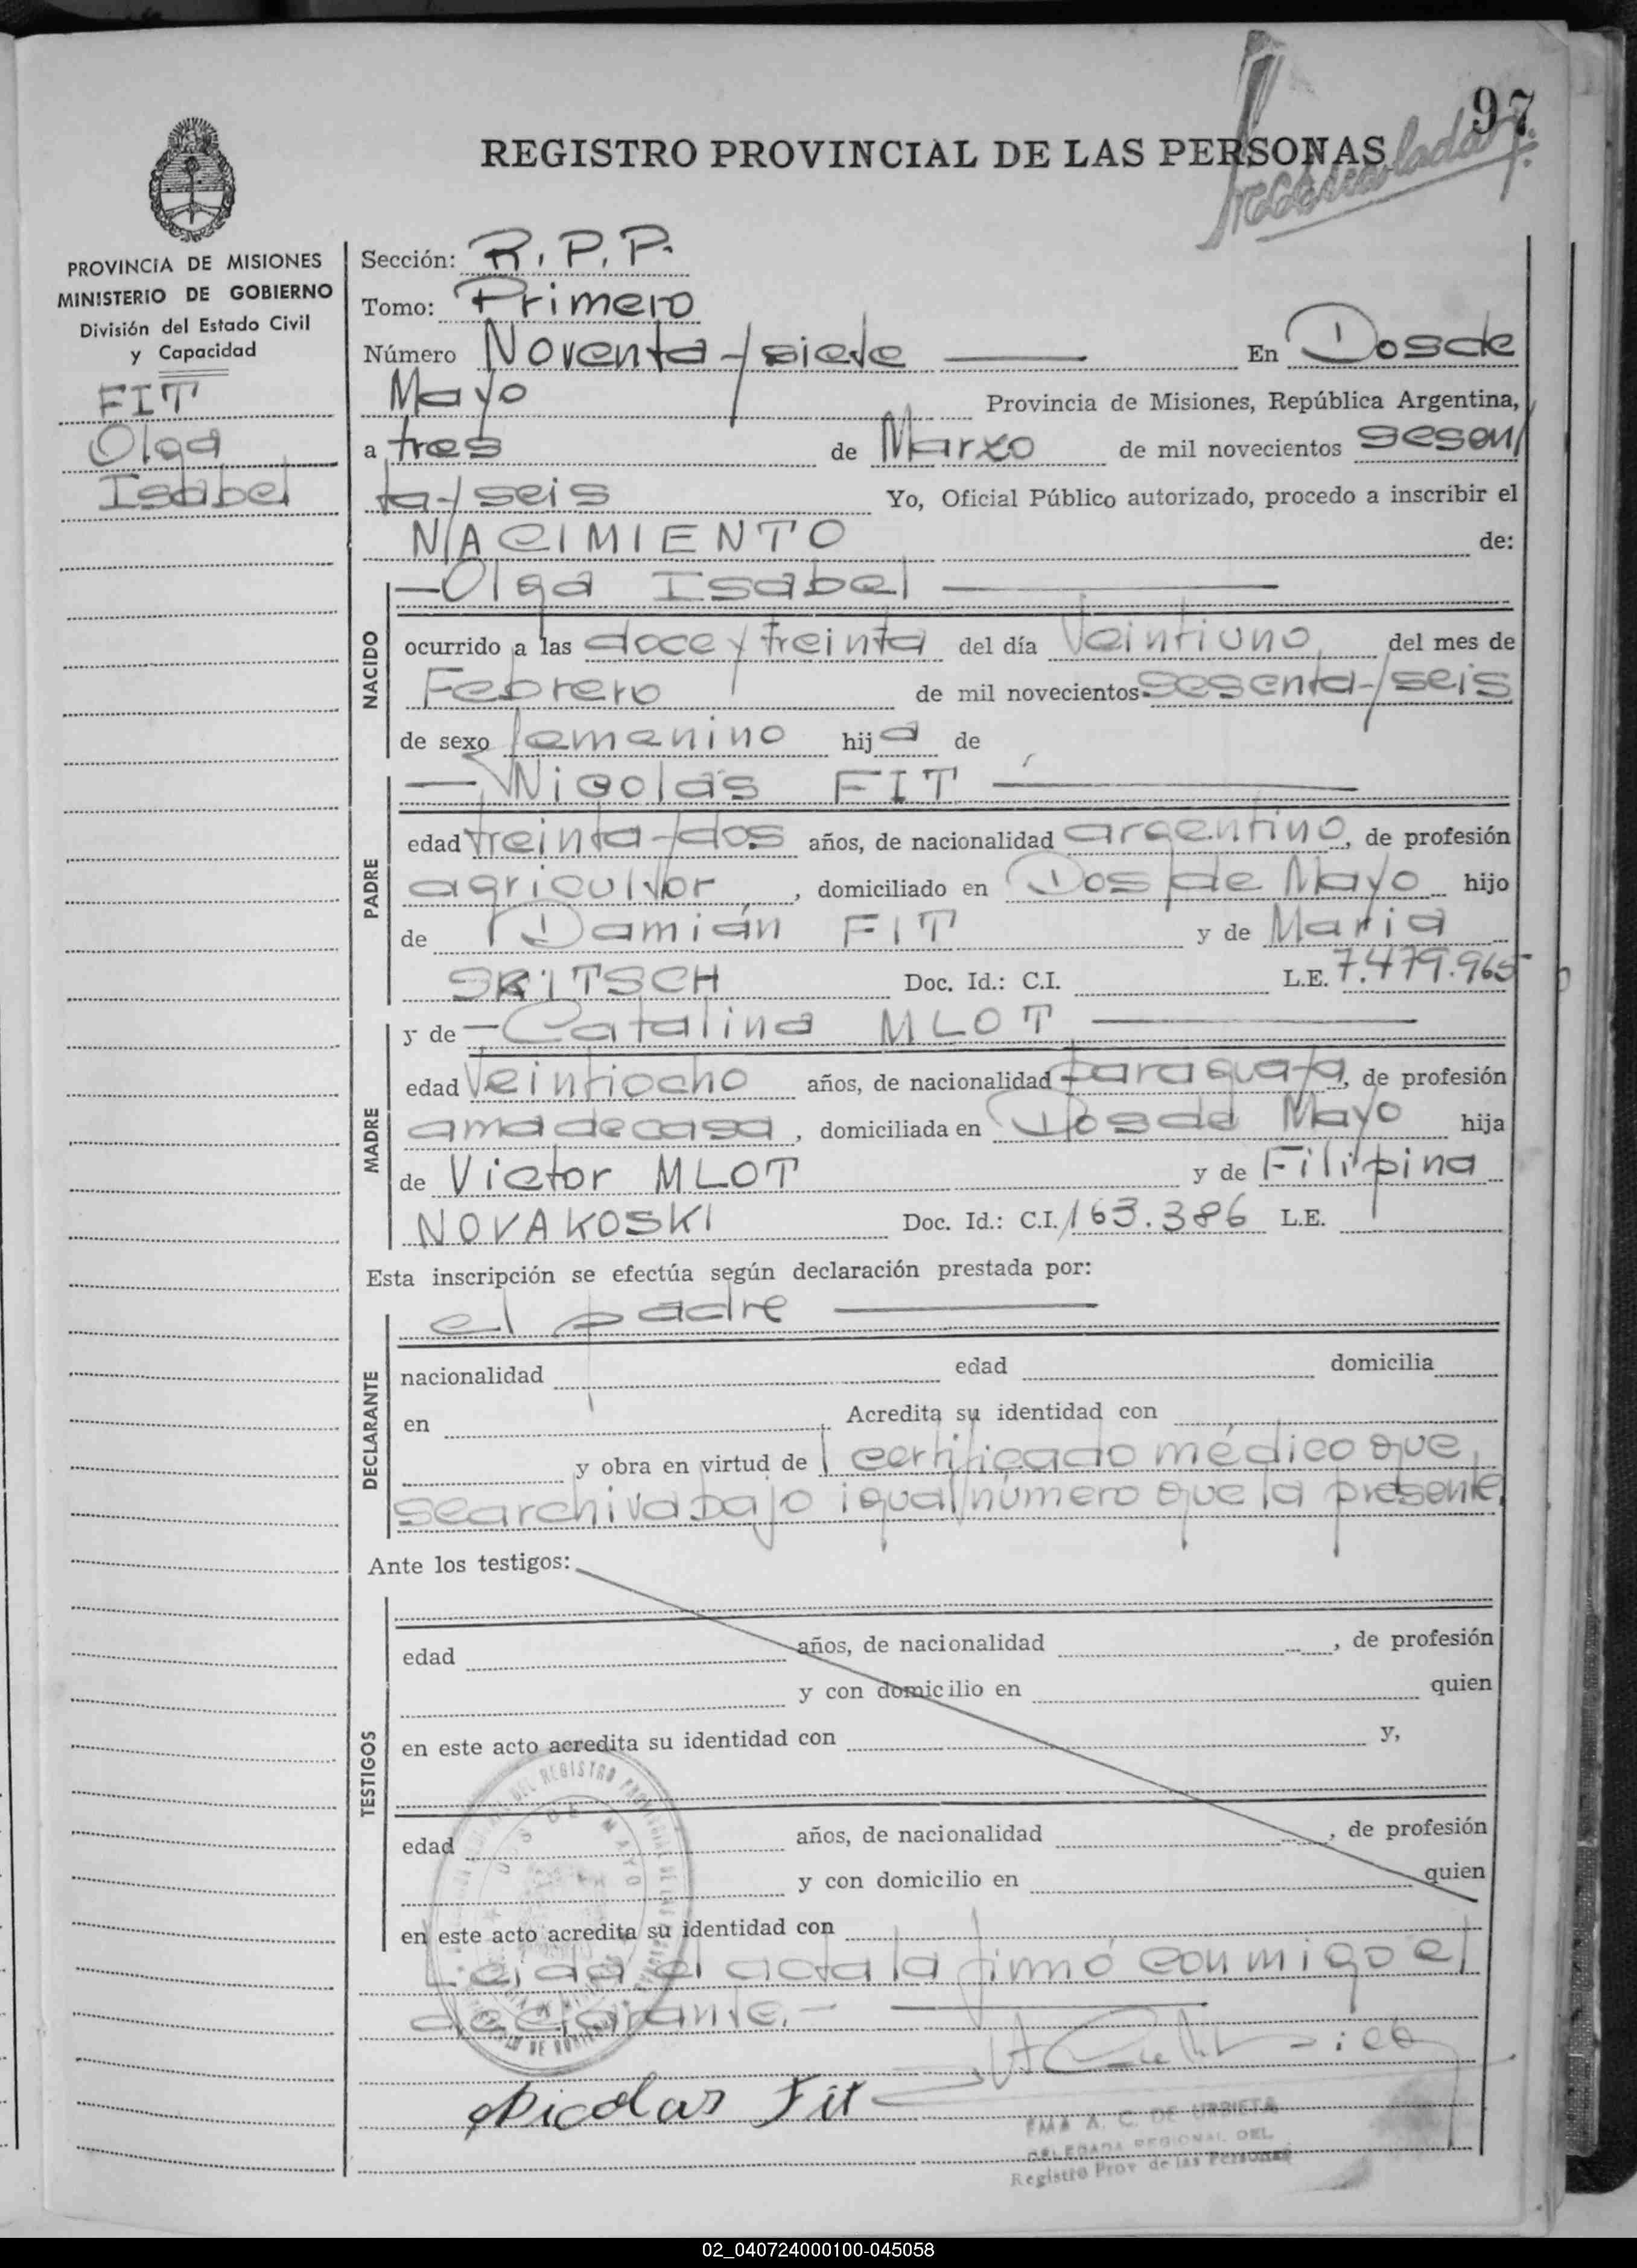 97
REGISTRO PROVINCIAL DE LAS PERSONAS
PROVINCIA DE MISIONES
MINISTERIO DE GOBIERNO
División del Estado Civil
y Capacidad
FIT
Olga
Isabel
Sección: R.P.P.
Tomo: Primero
Número Noventa y siete En Dos de
Mayo Provincia de Misiones, República Argentina,
a tres de Marzo de mil novecientos sesen
ta y seis Yo, Oficial Público autorizado, procedo a inscribir el
NACIMIENTO de:
— Olga Isabel —
NACIDO
ocurrido a las doce y treinta del día Veintiuno del mes de
Febrero de mil novecientos sesenta y seis
de sexo femenino hija de
— Nicolás FIT —
PADRE
edad treinta y dos años, de nacionalidad argentino, de profesión
agricultor, domiciliado en Dos de Mayo hijo
de Damián FIT y de Maria
SKITSCH Doc. Id.: C.I. L.E. 7.479.965
MADRE
y de — Catalina MLOT —
edad Veintiocho años, de nacionalidad paraguaya, de profesión
ama de casa, domiciliada en Dos de Mayo hija
de Victor MLOT y de Filipina
NOVAKOSKI Doc. Id.: C.I. 163.386 L.E.
Esta inscripción se efectúa según declaración prestada por:
el padre —
DECLARANTE
nacionalidad edad domicilia
en Acredita su identidad con
y obra en virtud de certificado médico que
se archiva bajo igual número que la presente.
Ante los testigos:
TESTIGOS
edad años, de nacionalidad , de profesión
y con domicilio en quien
en este acto acredita su identidad con y,
edad años, de nacionalidad , de profesión
y con domicilio en quien
en este acto acredita su identidad con
Leída el acta la firmó conmigo el
declarante.-
Nicolas Fit
EMA A. C. DE URBIETA
DELEGADA REGIONAL DEL
Registro Prov. de las Personas
DOS DE MAYO
02_040724000100-045058